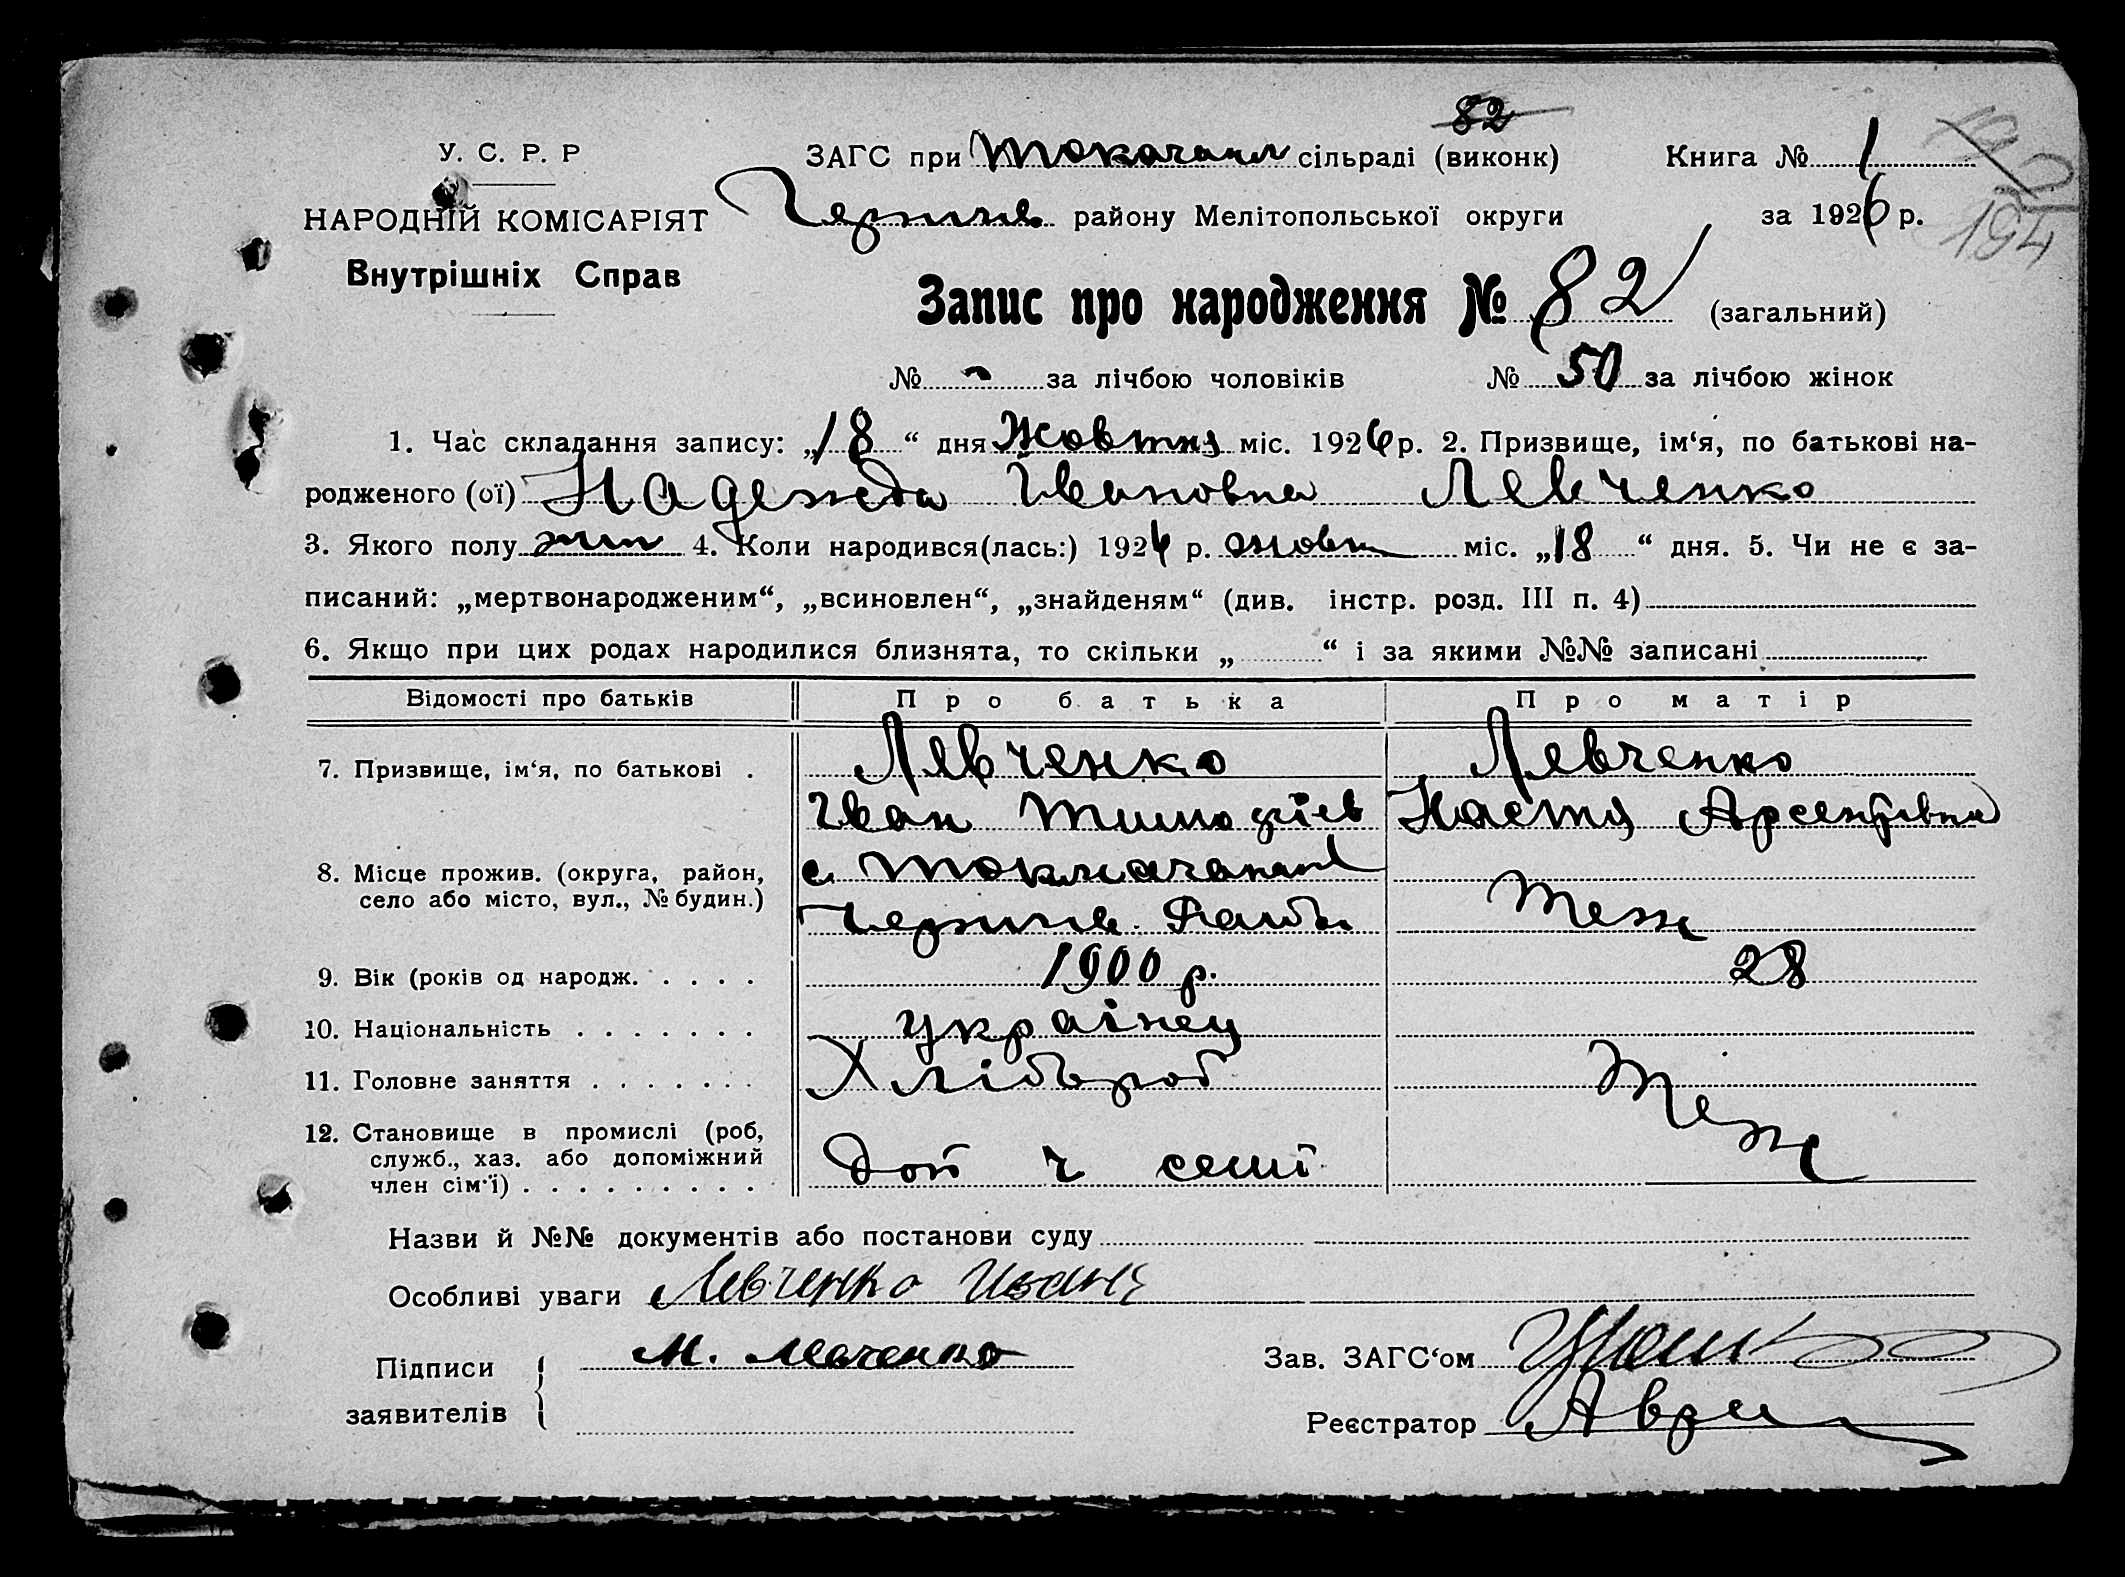 82
У. С. Р. Р
ЗАГС при сільраді (виконк) Книга № 1
НАРОДНІЙ КОМІСАРІЯТ
району Мелітопольської округи за 1926 р. 194
Внутрішніх Справ
Запис про народження № 82 (загальний)
№ - за лічбою чоловіків № 50 за лічбою жінок
1. Час складання запису: „18“ дня Жовтня міс. 1926 р. 2. Призвище, ім‘я, по батькові на-
родженого (ої) Надежда Івановна Левченко
3. Якого полу жін 4. Коли народився(лась:) 1926 р. жовт міс. „18“ дня. 5. Чи не є за-
писаний: „мертвонародженим“, „всиновлен“, „знайденям“ (див. інстр. розд. III п. 4)
6. Якщо при цих родах народилися близнята, то скільки „ “ і за якими №№ записані
Відомості про батьків Про батька Про матір
7. Призвище, ім‘я, по батькові . Левченко Левченко
Іван Настя Арсентівна
8. Місце прожив. (округа, район, с.
село або місто, вул., № будин.) Теж
9. Вік (років од народж. . . . . 1900 р. 28
10. Національність . . . . . . . українец
11. Головне заняття . . . . . . . Хлібороб Теж
12. Становище в промислі (роб,
служб., хаз. або допоміжний доп ч семі
член сім‘ї) . . . . . . . . .
Назви й №№ документів або постанови суду
Особливі уваги Левченко Иван
Підписи М. Левченко Зав. ЗАГС‘ом
заявителів Реєстратор